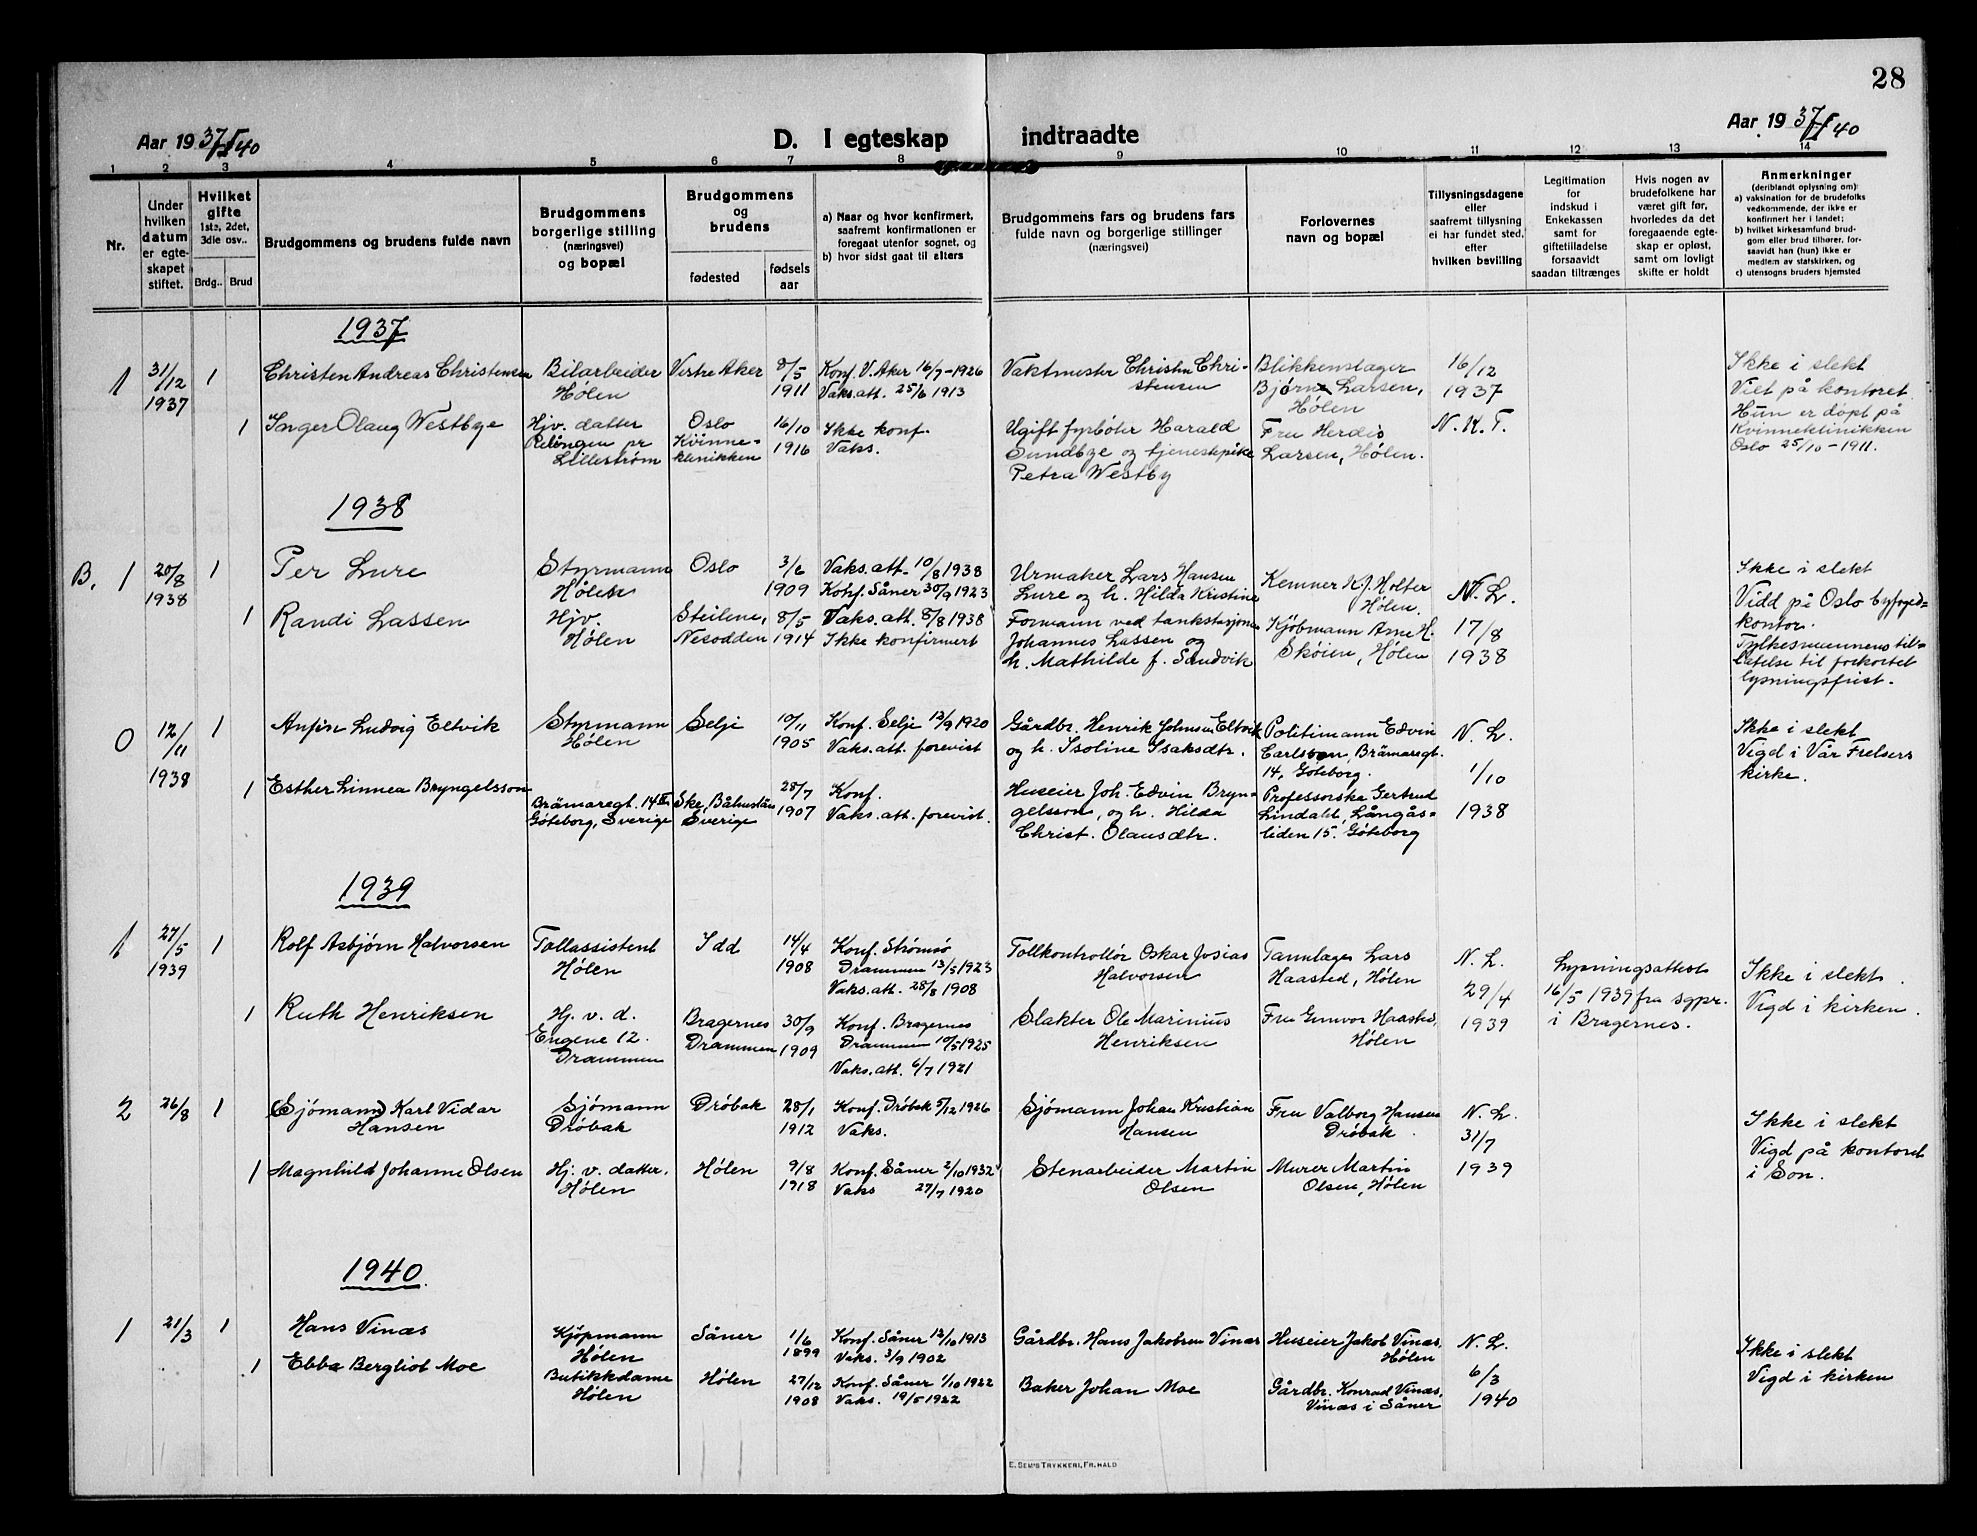 28
Aar 1937/40
D. I egteskap indtraadte
Aar 1937/40
1 2 3 4 5 6 7 8 9 10 11 12 13 14
Nr.
Under hvilken datum er egteskapet stiftet.
Hvilket gifte 1ste, 2det, 3die osv..
Brdg.. Brud
Brudgommens og brudens fulde navn
Brudgommens borgerlige stilling (næringsvei) og bopæl
Brudgommens og brudens
fødested
fødsels aar
a) Naar og hvor konfirmert, saafremt konfirmationen er foregaat utenfor sognet, og
b) hvor sidst gaat til alters
Brudgommens fars og brudens fars fulde navn og borgerlige stillinger (næringsvei)
Forlovernes navn og bopæl
Tillysningsdagene eller saafremt tillysning ei har fundet sted, efter hvilken bevilling
Legitimation for indskud i Enkekassen samt for giftetilladelse forsaavidt saadan tiltrænges
Hvis nogen av brudefolkene har været gift før, hvorledes da det foregaaende egteskap er opløst, samt om lovligt skifte er holdt
Anmerkninger
(deriblandt oplysning om)
a) vaksination for de brudefolks vedkommende, der ikke er konfirmert her i landet;
b) hvilket kirkesamfund brudgom eller brud tilhører, forsaavidt han (hun) ikke er medlem av statskirken, og
c) utensogns bruders hjemsted
1937
1
31/12
1937
1
Christen Andreas Christensen
Bilarbeider
Hølen
Vestre Aker
8/5
1911
Konf. V. Aker 16/7-1926
Vaks. att. 25/6 1913
Vaktmester Christin Christensen
Blikkenslager
Bjørn Larsen,
Hølen
16/12
1937
N. K. T.
Ikke i slekt
Viet på kontoret.
Hun er døpt på
Kvinneklinikken
Oslo 25/10-1911.
1
Inger Olaug Westbye
Hjv. datter
Relingen pr
Lillestrøm
Oslo
Kvinneklinikken
16/10
1916
Ikke konf.
Vaks.
Ugift fyrbøter Harald
Sundbye og tjenestepike
Petra Westby
Fru Herdis
Larsen, Hølen.
1938
B. 1
20/8
1938
1
Per Lure
Styrmann
Hølen
Oslo
3/6
1909
Vaks. att. 10/8 1938
Konf. Såner 30/9 1923
Urmaker Lars Hansen
Lure og h. Hilda Kristine
Kemner K. J. Holter
Hølen.
N. L.
17/8
1938
Ikke i slekt
Vidd på Oslo byfogedkontor.
Fylkesmannens tillatelse til forkortet
lysningsfrist.
1
Randi Lassen
Hjv.
Hølen
Steilene,
Nesodden
8/5
1914
Vaks. att. 8/8 1938
Ikke konfirmert
Formann ved tankstasjonen
Johannes Lassen og
h. Mathilde f. Sandvik
Kjøbmann Arne H.
Skøien, Hølen
0
12/11
1938
1
Anfin Ludvig Eltvik
Styrmann
Hølen
Selje
10/11
1905
Konf. Selje 13/9 1920
Vaks. att. forevist
Gårdbr. Henrik Johnsen Eltvik
og h. Isoline Isaksdtr.
Politimann Edvin
Carlsson, Brämaregt.
14, Göteborg.
N. L.
1/10
1938
Ikke i slekt
Vigd i Vår Frelsers
kirke.
1
Esther Linnea Bryngelsson
Brämaregt. 14
Göteborg, Sverige
Ske, Båhuslän
Sverige
28/7
1907
Konf.
Vaks. att. forevist.
Huseier Joh. Edvin Bryngelsson, og h. Hilda
Christ. Olausdtr.
Professorska Gertrud
Lindahl, Långåsliden 15. Göteborg
1939
1
27/5
1939
1
Rolf Asbjørn Halvorsen
Tollassistent
Hølen
Idd
14/4
1908
Konf. Strømsø
Drammen 13/5 1923
Vaks. att. 28/8 1908
Tollkontrollør Oskar Josias
Halvorsen
Tannlæge Lars
Haasted, Hølen
N. L.
29/4
1939
Lysningsattest
16/5 1939 fra sgpr.
i Bragernes.
Ikke i slekt.
Vigd i kirken.
1
Ruth Henriksen
Hj. v. d.
Engene 12.
Drammen
Bragernes
Drammen
30/9
1909
Konf. Bragernes
Drammen 10/5 1925
Vaks. att. 6/7 1921
Slakter Ole Marinius
Henriksen
Fru Gunvor Haasted,
Hølen
2
26/8
1
(Sjømann) Karl Vidar
Hansen
Sjømann
Drøbak
Drøbak
28/1
1912
Konf. Drøbak 5/12 1926
Vaks.
Sjømann Johan Kristian
Hansen
Fru Valborg Hansen
Drøbak.
N. L.
31/7
1939
Ikke i slekt
Vigd på kontoret
i Son.
1
Magnhild Johanne Olsen
Hj. v. datter.
Hølen
Hølen
9/8
1918
Konf. Såner 2/10 1932
Vaks 27/7 1920
Stenarbeider Martin
Olsen
Murer Martin
Olsen, Hølen
1940.
1
21/3
1
Hans Vinæs
Kjøpmann
Hølen
Såner
1/6
1899
Konf. Såner 12/10 1913
Vaks. 3/9 1902
Gårdbr. Hans Jakobsen Vinæs
Huseier Jakob Vinæs,
Hølen
N. L.
6/3
1940
Ikke i slekt
Vigd i kirken
1
Ebba Bergliot Moe
Butikkdame
Hølen
Hølen
27/12
1908
Konf. Såner 1/10 1922
Vaks. 19/5 1922
Baker Johan Moe
Gårdbr. Konrad Vinæs,
Vinæs i Såner
E. SEM'S TRYKKERI, FR.HALD